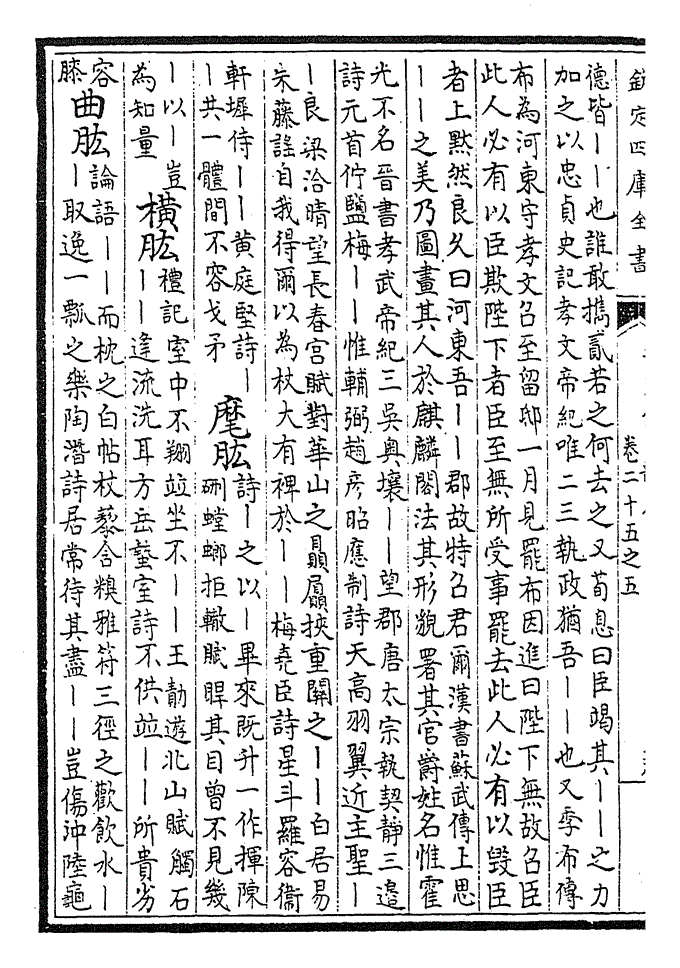 欽定四庫全書
卷二十五之五
德皆丨丨也誰敢攜貳若之何去之又荀息曰臣竭其丨丨之力
加之以忠貞史記孝文帝紀唯二三執政猶吾丨丨也又季布傳
布為河東守孝文召至留邸一月見罷布因進曰陛下無故召臣
此人必有以臣欺陛下者臣至無所受事罷去此人必有以毀臣
者上黙然良久曰河東吾丨丨郡故特召君爾漢書蘇武傳上思
丨丨之美乃圖畫其人於麒麟閣法其形貌署其官爵姓名惟霍
光不名晉書孝武帝紀三吳奥壤丨丨望郡唐太宗執契靜三邉
詩元首佇鹽梅丨丨惟輔弼趙彦昭應制詩天高羽翼近主聖丨
丨良 梁洽晴望長春宫賦對華山之贔屭挾重關之丨丨白居易
朱藤謠自我得爾以為杖大有裨於丨丨梅堯臣詩星斗羅容衞
軒墀侍丨丨黄庭堅詩丨
丨共一體間不容戈矛
麾肱
詩丨之以丨畢來既升一作揮陳
硎螳螂拒轍賦睅其目曾不見幾
丨以丨豈
為知量
橫肱
禮記室中不翔竝坐不丨丨王勣遊北山賦觸石
丨丨逢流洗耳方岳蠶室詩不供竝丨丨所貴劣
容
膝
曲肱
論語丨丨而枕之白帖杖藜含糗雅符三徑之歡飲水丨
丨取逸一瓢之樂陶潛詩居常待其盡丨丨豈傷沖陸龜